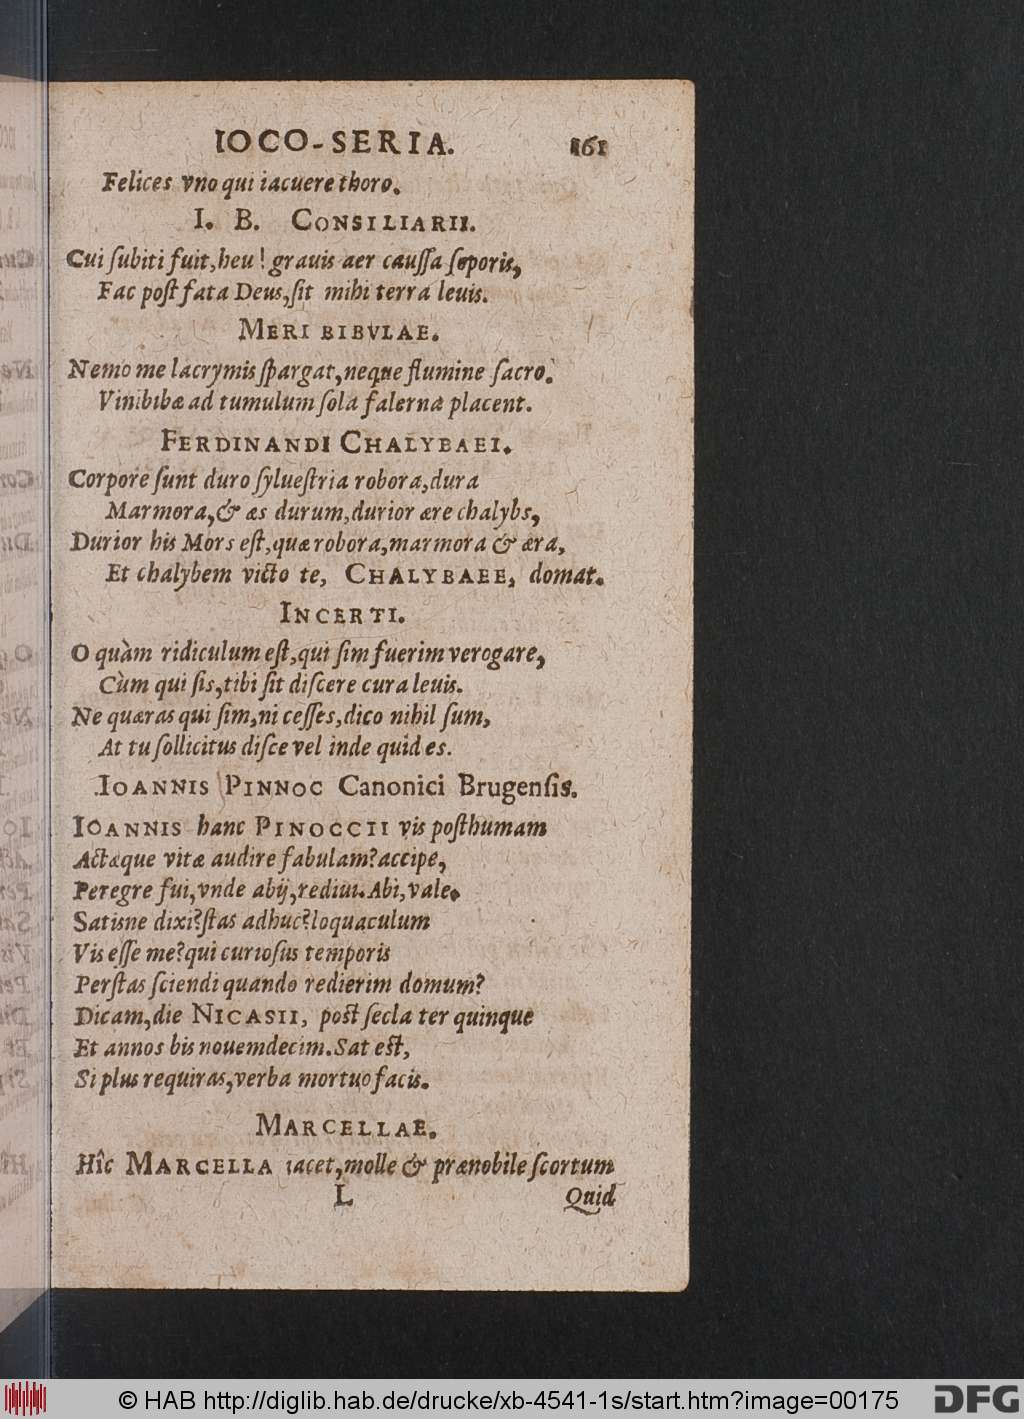 IOCO-SERIA. 161
Felices vno qui iacuere thoro.
I. B. CONSILIARII.
Cui ſubiti fuit, heu! grauis aer cauſſa ſoporis,
Fac poſt fata Deus, ſit mihi terra leuis.
MERI BIBVLAE.
Nemo me lacrymis ſpargat, neque flumine ſacro.
Vinibibæ ad tumulum ſola falerna placent.
FERDINANDI CHALYBAEI.
Corpore ſunt duro ſylueſtria robora, dura
Marmora, & æs durum, durior ære chalybs,
Durior his Mors eſt, quæ robora, marmora & æra,
Et chalybem victo te, CHALYBAEE, domat.
INCERTI.
O quàm ridiculum eſt, qui ſim fuerim ve rogare,
Cùm qui ſis, tibi ſit diſcere cura leuis.
Ne quæras qui ſim, ni ceſſes, dico nihil ſum,
At tu ſollicitus diſce vel inde quid es.
IOANNIS PINNOC Canonici Brugenſis.
IOANNIS hanc PINOCCII vis poſthumam
Actæque vitæ audire fabulam? accipe,
Peregre fui, vnde abij, rediui. Abi, vale.
Satisne dixi? ſtas adhuc? loquaculum
Vis eſſe me? qui curioſus temporis
Perſtas ſciendi quando redierim domum?
Dicam, die NICASII, poſt ſecla ter quinque
Et annos bis nouemdecim. Sat eſt,
Si plus requiras, verba mortuo facis.
MARCELLAE.
Hîc MARCELLA iacet, molle & prænobile ſcortum
L Quid
© HAB http://diglib.hab.de/drucke/xb-4541-1s/start.htm?image=00175 DFG